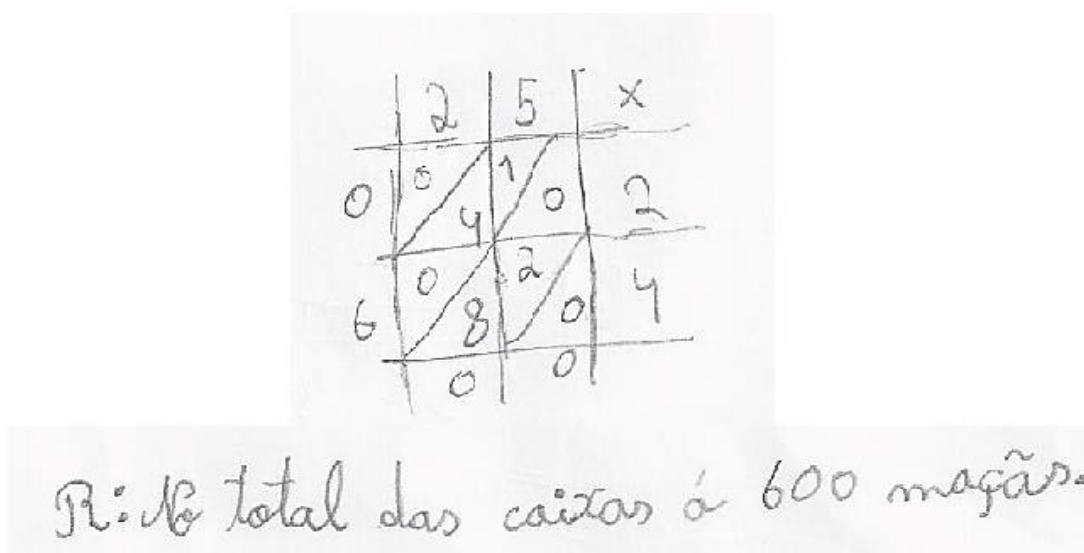 2 5 x
0 0 1
4 0 2
0 2
6 8 0 4
0 0
R: No total das caixas á 600 maçãs.